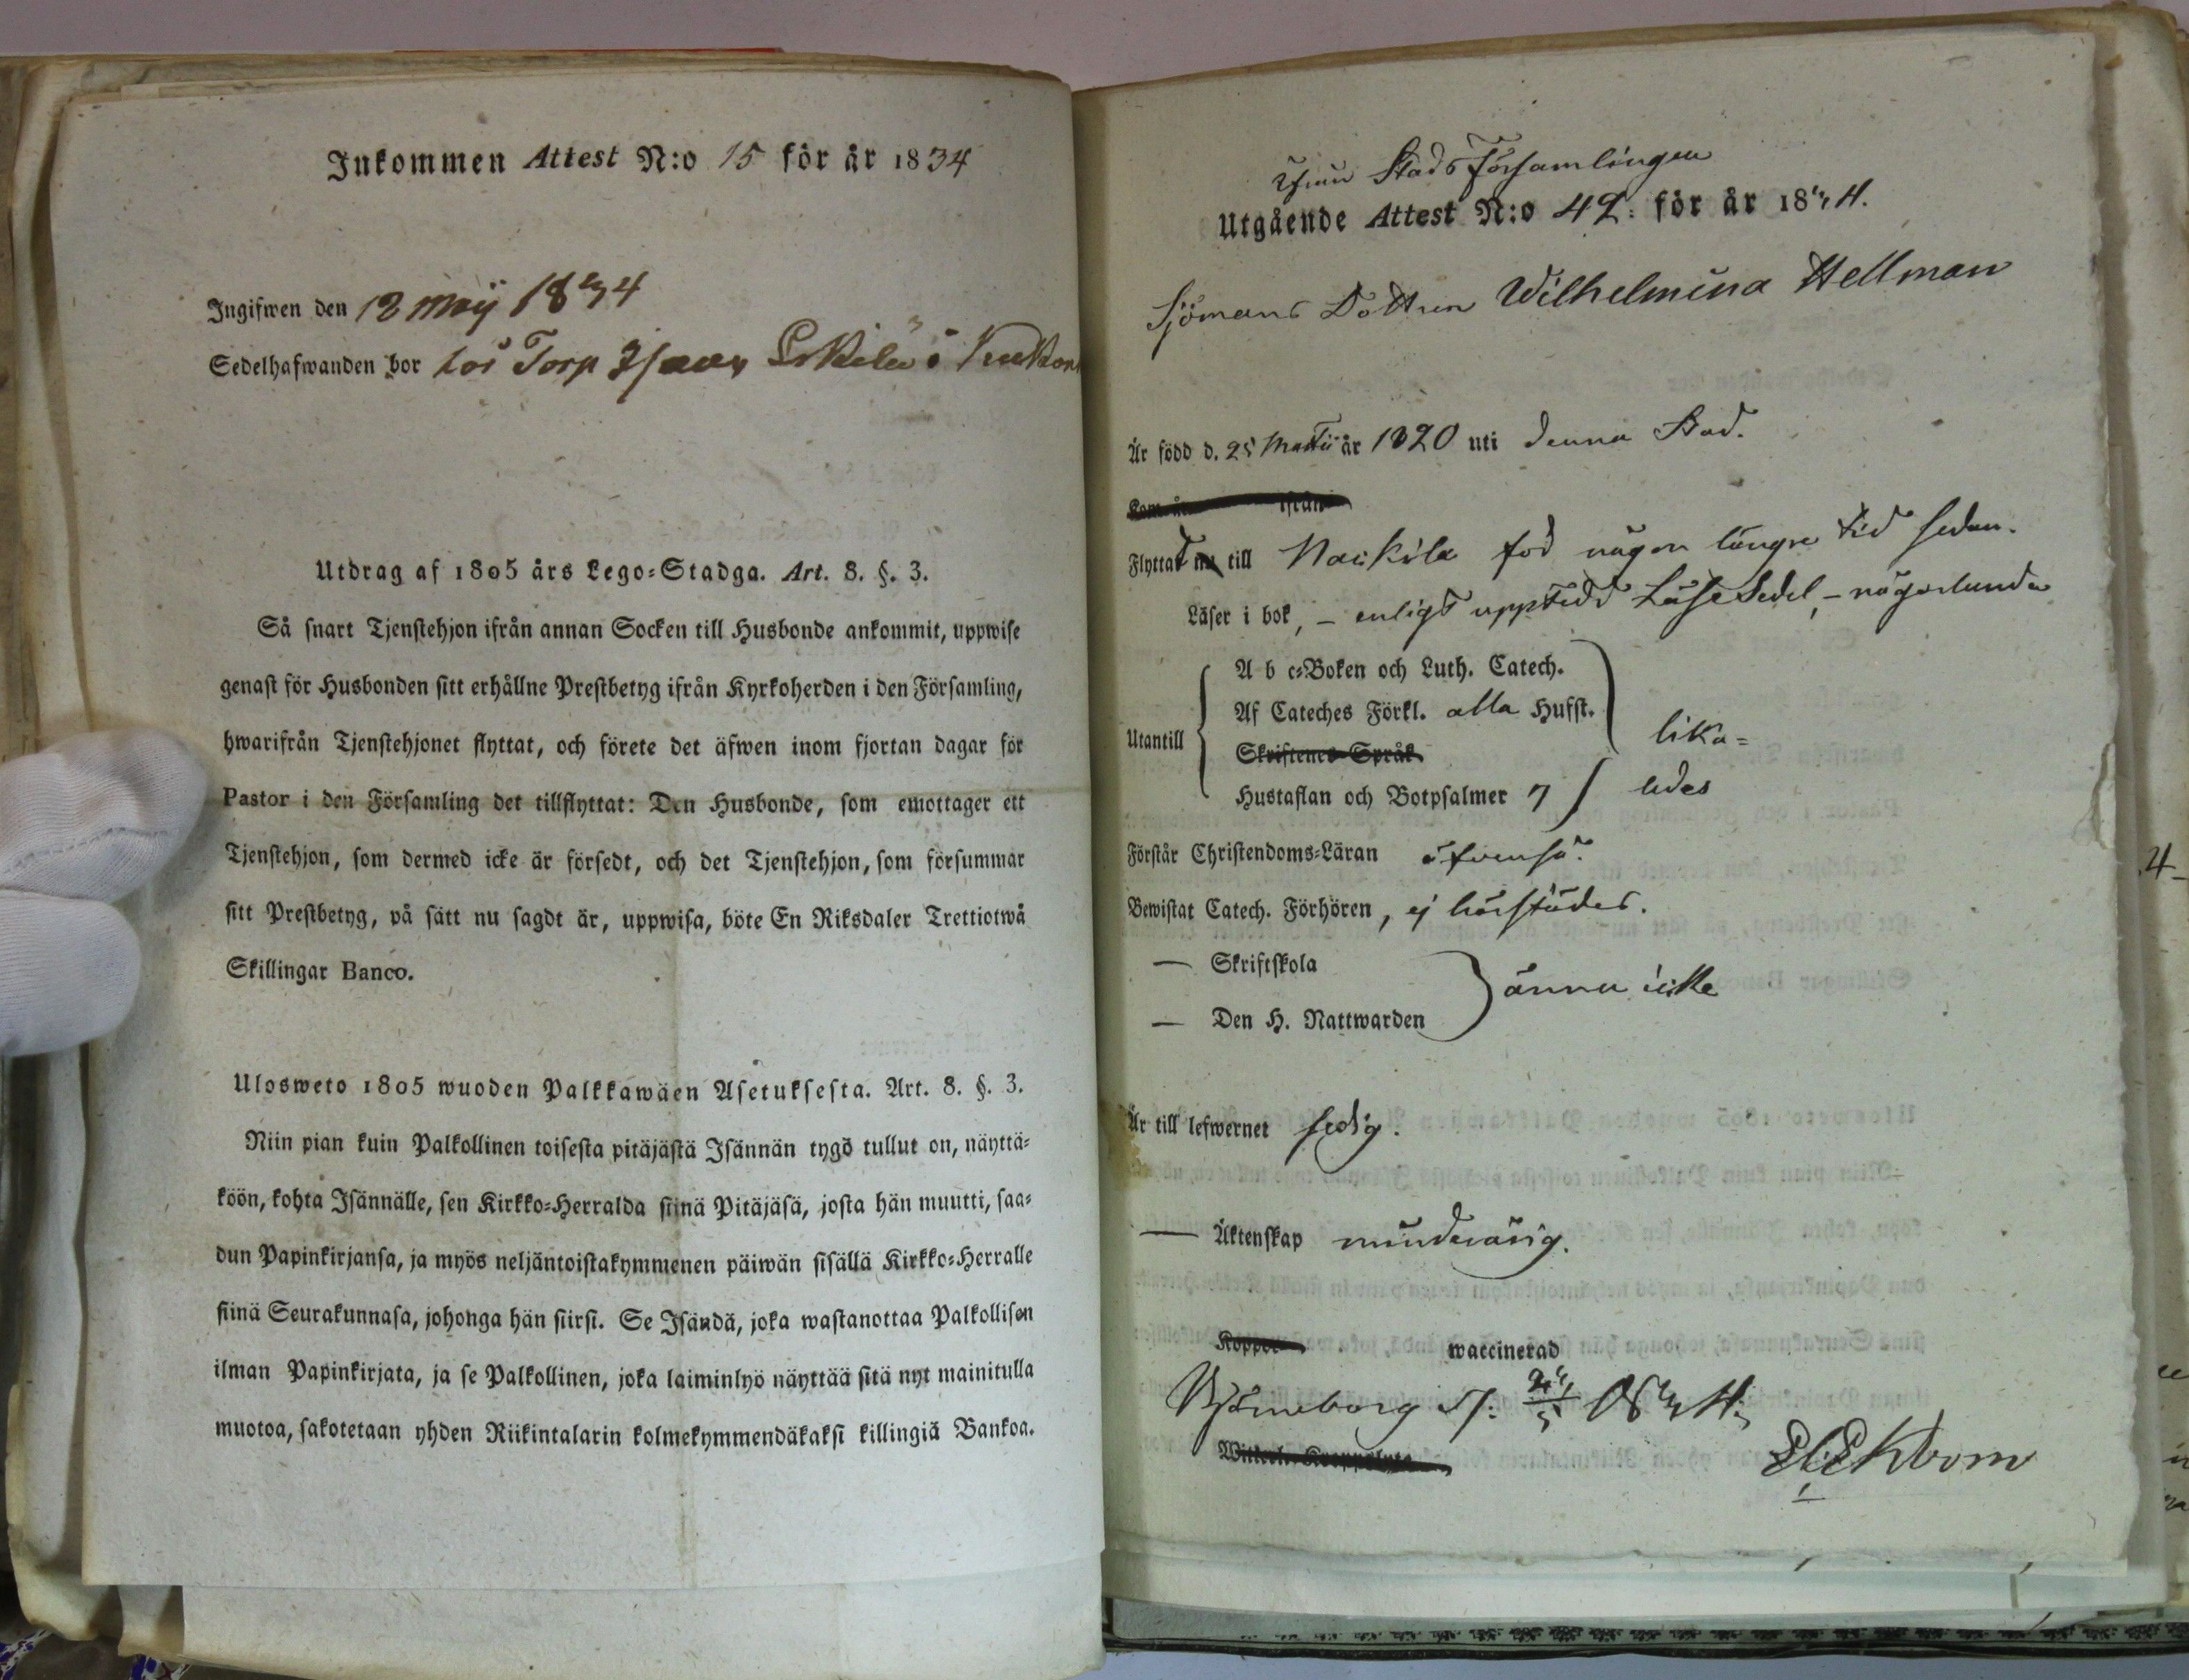 Inkommen Attest N:o 15 för år 1834
Ingifwen den 12 Maij 1834
Sedelhafwanden bor hos Torp
Utdrag af 1805 års Lego=Stadga. Art. 8. §. 3.
Så snart Tjenstehjon ifrån annan Socken till Husbonde ankommit, uppwise
genast för Husbonden sitt erhållne Prestbetyg ifrån Kyrkoherden i den Församling,
hwarifrån Tjenstehjonet flyttat, och förete det äfwen inom fjortan dagar för
Pastor i den Församling det tillflyttat: Den Husbonde, som emottager ett
Tjenstehjon, som dermed icke är försedt, och det Tjenstehjon, som försummar
sitt Prestbetyg, på sätt nu sagdt är, uppwisa, böte En Riksdaler Trettiotwå
Skillingar Banco.
Ulosweto 1805 wuoden Palkkawäen Asetuksesta. Art. 8. §. 3.
Niin pian kuin Palkollinen toisesta pitäjästä Isännän tygö tullut on, näyttä=
köön, kohta Isännälle, sen Kirkko=Herralda siinä Pitäjäsä, josta hän muutti, saa=
dun Papinkirjansa, ja myös neljäntoistakymmenen päiwän sisällä Kirkko=Herralle
siinä Seurakunnasa, johonga hän siirsi. Se Isändä, joka wastanottaa Palkollisen
ilman Papinkirjata, ja se Palkollinen, joka laiminlyö näyttää sitä nyt mainitulla
muotoa, sakotetaan yhden Riikintalarin kolmekymmendäkaksi killingiä Bankoa.
Stads Församlingen
Utgående Attest N:o 42: för år 1834.
Sjömans Dottren Wilhelmina Hellman
Är född d. 25 Martii år 1820 uti denna Stad.
Kom år ifrån
Flyttat nu till Nackila för någon längre tid sedan.
Läser i bok, – enligt uppstedd Läse Sedel, – någorlunda
A b c=Boken och Luth. Catech.
Af Cateches Förkl. alla Husst.
Utantill
Skriftenes Språk
lika=
Hustaflan och Botpsalmer 7
ledes
Förstår Christendoms=Läran äfvenså.
Bewistat Catech. Förhören, ej härstädes.
— Skriftskola
ännu icke
— Den H. Nattwarden
Är till lefwernet fredig.
— Äktenskap minderårig.
Koppor waccinerad
Björneborg d:
Ekbom
4